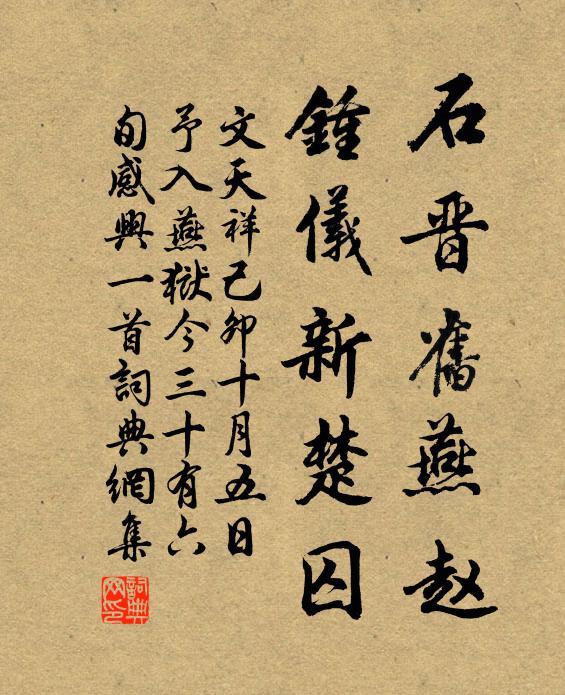 石晋舊燕赵
鍾儀新楚囚
文天祥己卯十月五日
予入燕獄今三十有六
旬感興一首詞典網集
詞典网印